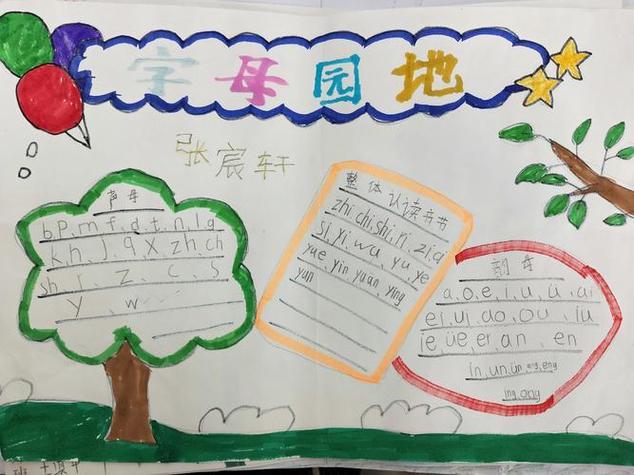 字母园地
张宸轩
声母
b p m f d t n l g
k h j q x zh ch
sh r z c s
y w
整体认读音节
zhi chi shi ri zi ci
si yi wu yu ye
yue yin yuan ying
yun
韵母
a o e i u ü ai
ei ui ao ou iu
ie üe er an en
in un ün ang eng
ing ong